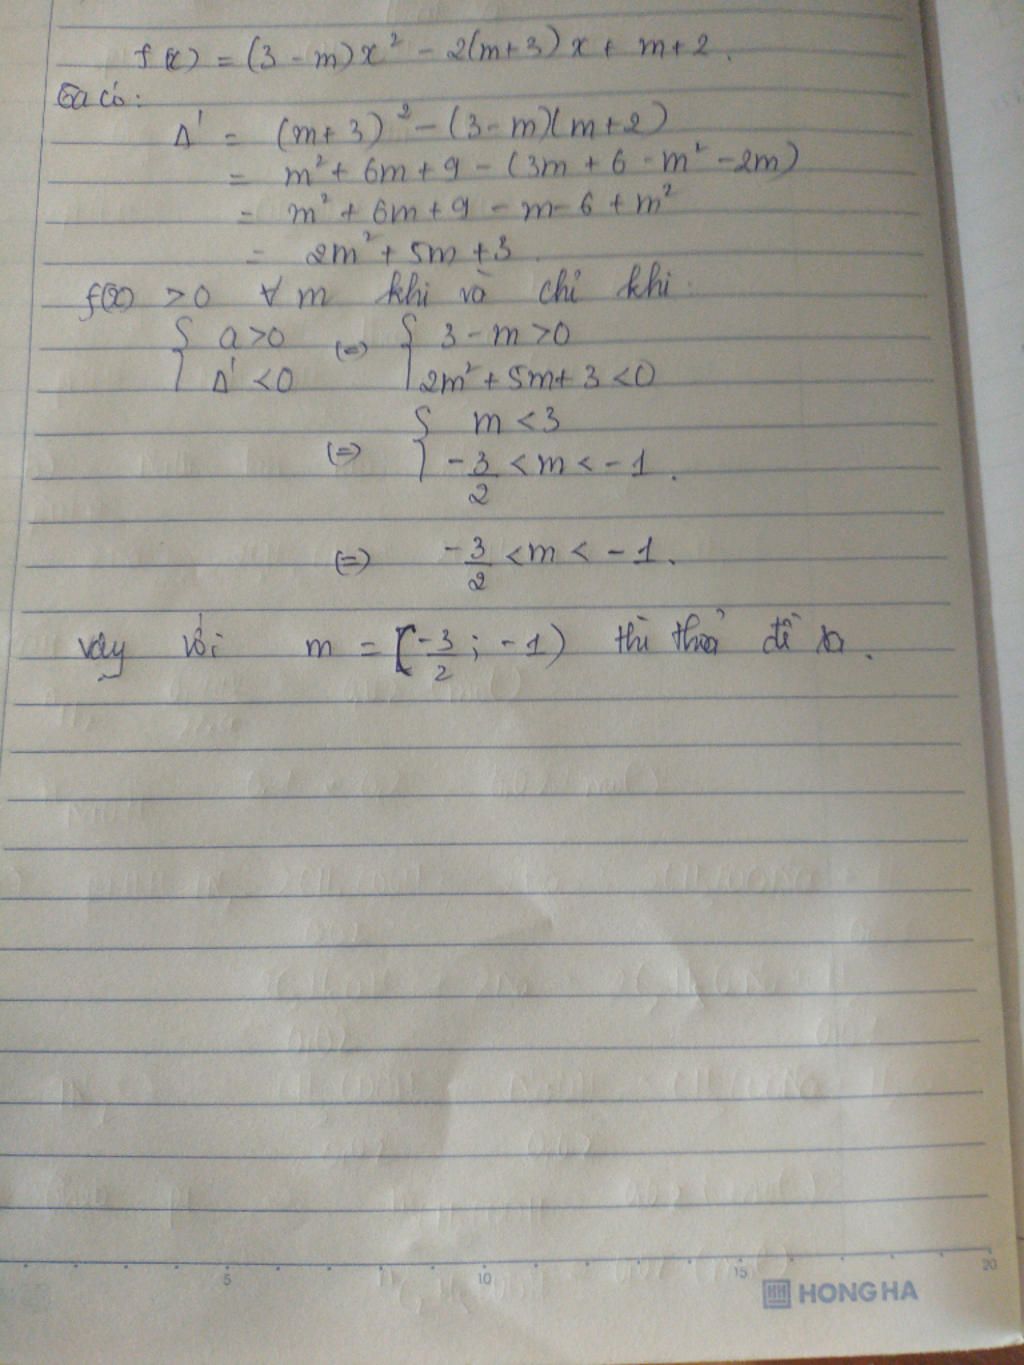 f(x) = (3 - m)x² - 2(m+3)x + m+2.
Ta có:
Δ' = (m+3)² - (3-m)(m+2)
= m² + 6m + 9 - (3m + 6 - m² - 2m)
= m² + 6m + 9 - m - 6 + m²
= 2m² + 5m + 3.
f(x) > 0 ∀ m khi và chỉ khi.
{ a > 0 (=) { 3 - m > 0
Δ' < 0 2m² + 5m + 3 < 0
(=) { m < 3
-3/2 < m < -1.
(=) -3/2 < m < -1.
vậy với m = [-3/2; -1) thì thoả đề ra.
5 10 15 20
HONG HA